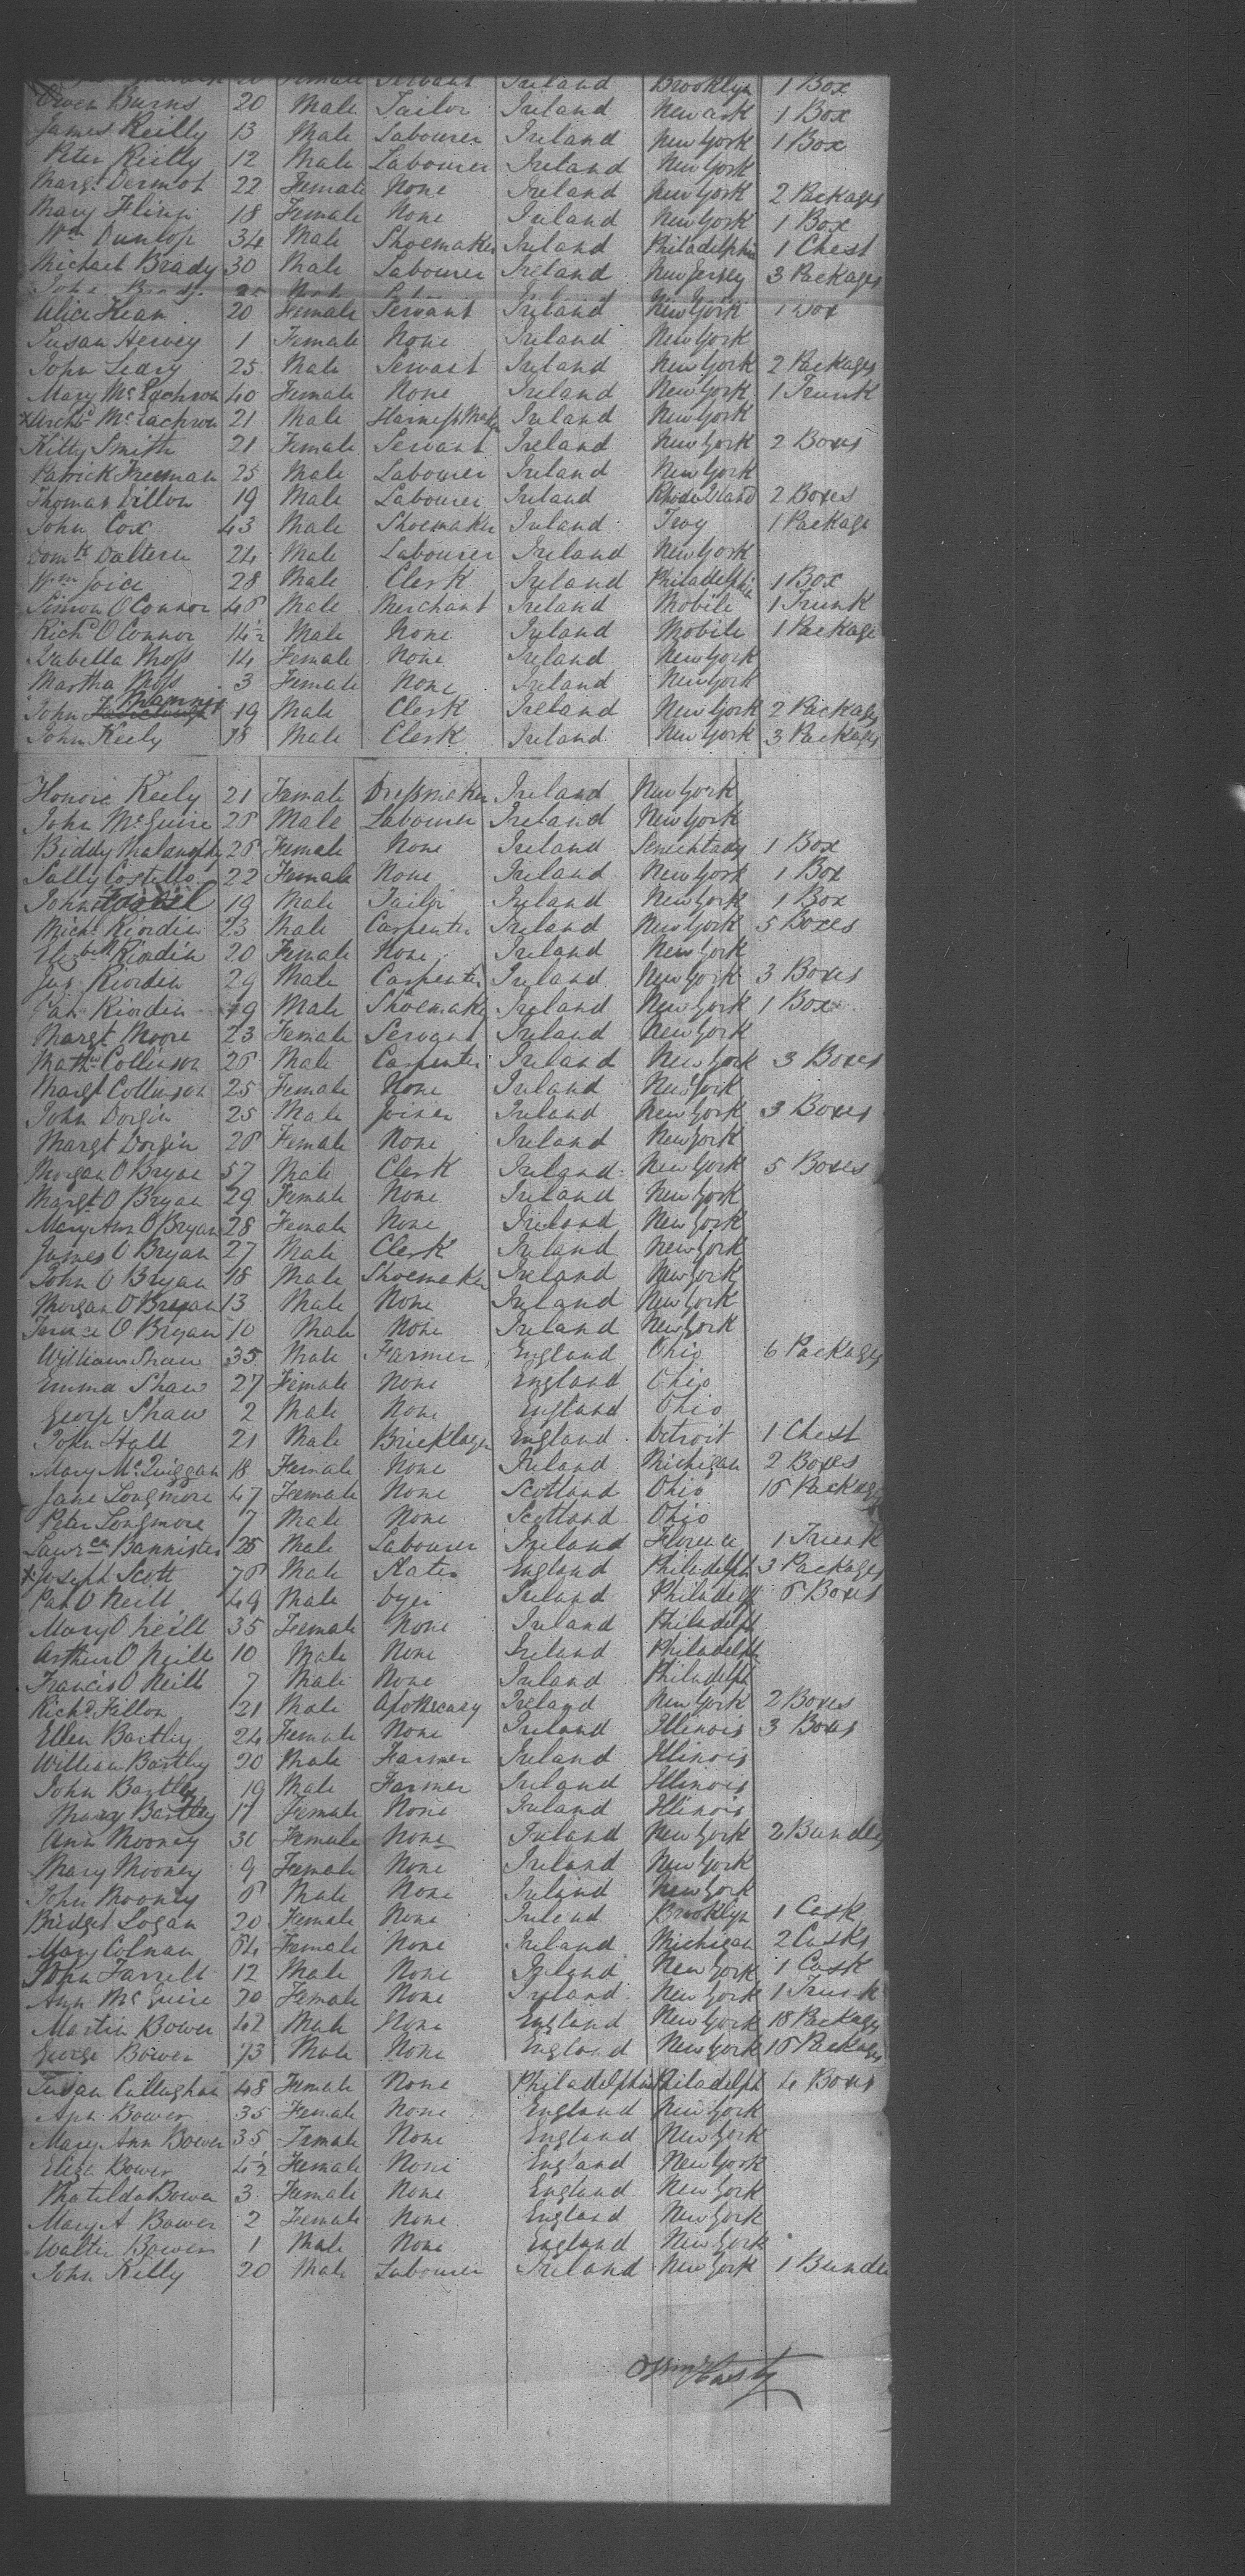 Female Servant Ireland Brooklyn 1 Box
Owen Burns 20 Male Tailor Ireland Newark 1 Box
James Reilly 13 Male Labourer Ireland New York 1 Box
Peter Reilly 12 Male Labourer Ireland New York
Margt Dermot 22 Female None Ireland New York 2 Packages
Mary Flinn 18 Female None Ireland New York 1 Box
Wm Dunlop 34 Male Shoemaker Ireland Philadelphia 1 Chest
Michael Brady 30 Male Labourer Ireland New Jersey 3 Packages
John Brady 25 Male
Alice Kean 20 Female Servant Ireland New York 1 Box
Susan Hervey 1 Female None Ireland New York
John Leary 25 Male Servant Ireland New York 2 Packages
Mary McEachron 40 Female None Ireland New York 1 Trunk
x Archd McEachron 21 Male Harness Maker Ireland New York
Kitty Smith 21 Female Servant Ireland New York 2 Boxes
Patrick Freeman 25 Male Labourer Ireland New York
Thomas Dillon 19 Male Labourer Ireland Rhode Island 2 Boxes
John Cox 43 Male Shoemaker Ireland Troy 1 Package
Domk Daltern 24 Male Labourer Ireland New York
Wm Joice 28 Male Clerk Ireland Philadelphia 1 Box
Simon O Connor 46 Male Merchant Ireland Mobile 1 Trunk
Richd O Connor 14½ Male None Ireland Mobile 1 Package
Isabella Moss 14 Female None Ireland New York
Martha Moss 3 Female None Ireland New York
John 19 Male Clerk Ireland New York 2 Packages
John Keely 18 Male Clerk Ireland New York 3 Packages
Honore Keely 21 Female Dressmaker Ireland New York
John McGuire 26 Male Labourer Ireland New York
Biddy 26 Female None Ireland Senechtady 1 Box
Sally Costello 22 Female None Ireland New York 1 Box
John 19 Male Tailor Ireland New York 1 Box
Michl Riordin 23 Male Carpenter Ireland New York 5 Boxes
Elizbeth Riordin 20 Female None Ireland New York
Jas Riordin 29 Male Carpenter Ireland New York 3 Boxes
Pat Riordin 19 Male Shoemaker Ireland New York 1 Box
Margt Moore 23 Female Servant Ireland New York
Mathw Collinson 26 Male Carpenter Ireland New York 3 Boxes
Margt Collinson 25 Female None Ireland New York
John Dorgin 25 Male Joiner Ireland New York 3 Boxes
Margt Dorgin 26 Female None Ireland New York
Morgan O Bryan 57 Male Clerk Ireland New York 5 Boxes
Margt O Bryan 29 Female None Ireland New York
Mary Ann O Bryan 28 Female None Ireland New York
James O Bryan 27 Male Clerk Ireland New York
John O Bryan 18 Male Shoemaker Ireland New York
Morgan O Bryan 13 Male None Ireland New York
Terence O Bryan 10 Male None Ireland New York
William Shaw 35 Male Farmer England Ohio 6 Packages
Emma Shaw 27 Female None England Ohio
George Shaw 2 Male None England Ohio
John Hall 21 Male Bricklayer England Detroit 1 Chest
Mary McQuiggan 18 Female None Ireland Michigan 2 Boxes
Jane Longmore 47 Female None Scotland Ohio 16 Packages
Peter Longmore 7 Male None Scotland Ohio
Lawrce Bannister 25 Male Labourer Ireland Florence 1 Trunk
x Joseph Scott 76 Male Slater England Philadelph 3 Packages
Pat O Neill 49 Male Ireland Philadelp 6 Boxes
Mary O Neill 35 Female None Ireland Philadelph
Arthur O Neill 10 Male None Ireland Philadelph
Francis O Neill 7 Male None Ireland Philadelph
Richd Fillon 21 Male Apothecary Ireland New York 2 Boxes
Ellen Bartley 24 Female None Ireland Illinois 3 Boxes
William Bartley 20 Male Farmer Ireland Illinois
John Bartley 19 Male Farmer Ireland Illinois
Mary Bartley 17 Female None Ireland Illinois
Ann Mooney 30 Female None Ireland New York 2 Bundles
Mary Mooney 9 Female None Ireland New York
John Mooney 6 Male None Ireland New York
Bridget Logan 20 Female None Ireland Brooklyn 1 Cask
Mary Colman 64 Female None Ireland Michigan 2 Casks
John Farrell 12 Male None Ireland New York 1 Cask
Ann McGuire 30 Female None Ireland New York 1 Trunk
Martin Bower 42 Male None England New York 18 Packages
George Bower 73 Male None England New York 16 Packages
Susan Callaghan 48 Female None Philadelphia Philadelph 4 Boxes
Ann Bower 35 Female None England New York
Mary Ann Bower 35 Female None England New York
Eliza Bower 4½ Female None England New York
Matilda Bower 3 Female None England New York
Mary A Bower 2 Female None England New York
Walter Bower 1 Male None England New York
John Kelly 20 Male Labourer Ireland New York 1 Bundle
Wm Hasty